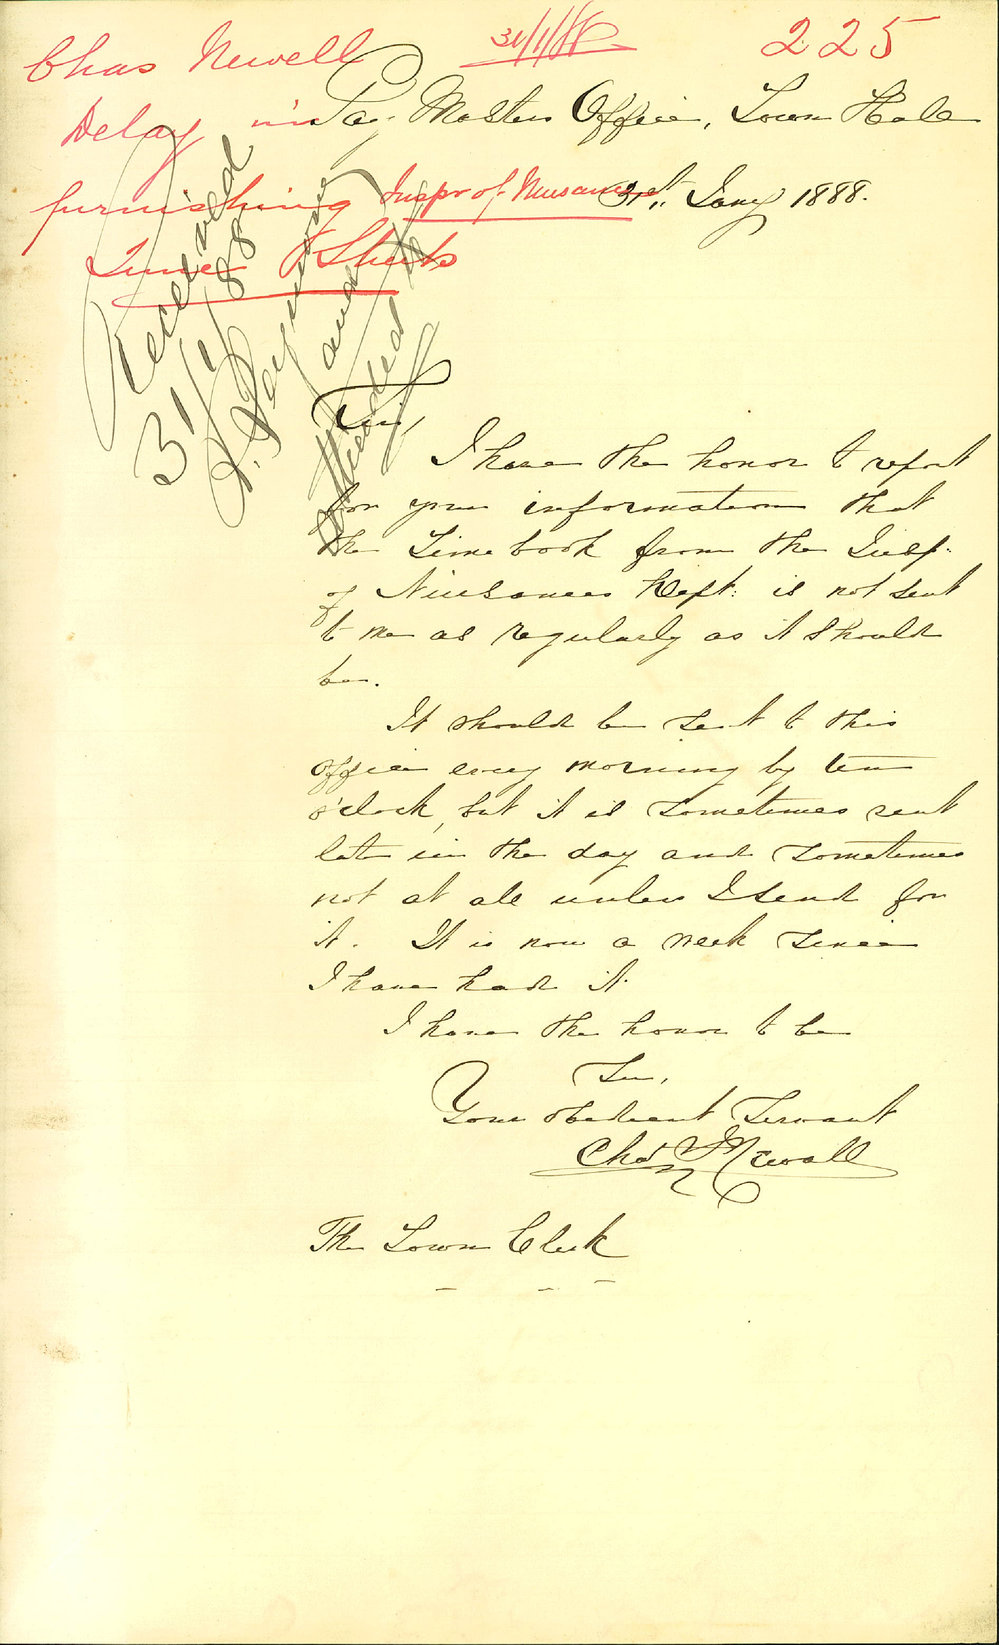 Chas Newell 31/1/88 225
Delay in
furnishing Inspr of Nuisances
Time Sheets
Pay Masters Office, Town Hall
31st Jany 1888.
Received
31/1/88
and
attended to
Sir,
I have the honor to report
for your information that
the Time book from the Insp.
of Nuisances Dept: is not sent
to me as regularly as it should
be.
It should be sent to this
office every morning by ten
o'clock, but it is sometimes sent
late in the day and sometimes
not at all unless I send for
it. It is now a week since
I have had it.
I have the honor to be
Sir,
Your obedient Servant
Chas Newall
The Town Clerk